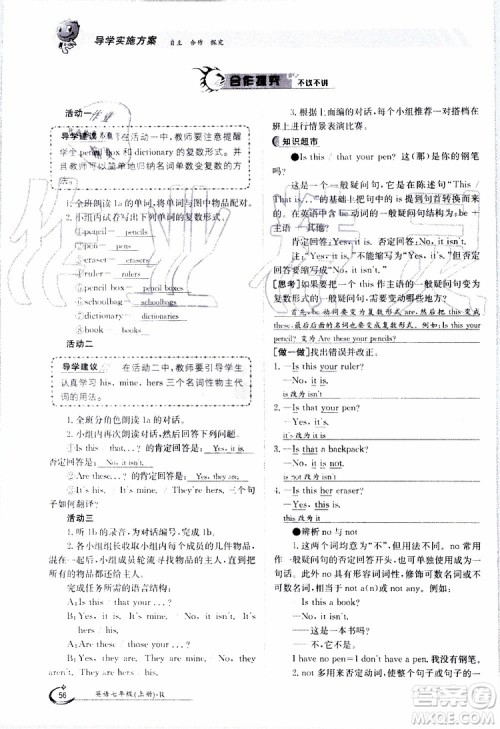 导学实施方案 自主 合作 探究
合作探究 不议不讲
活动一
导学建议 在活动一中,教师要注意提醒
学生 pencil box 和 dictionary 的复数形式。
并且教师可以简单地归纳名词单数变复数的
形式。
1. 全班朗读1a的单词,将单词与图中物品配对。
2. 小组内试着写出下列单词的复数形式。
①pencil — pencils
②pen — pens
③eraser — erasers
④ruler — rulers
⑤schoolbag — schoolbags
⑥dictionary — dictionaries
活动二
导学建议 在活动二中,教师要引导学生
认真学习 his, mine, hers 三个名词性物主代
词的用法。
1. 全班分角色朗读 1a 的对话。
2. 小组内再次朗读 1a 的对话,完成下列任务。
①Is this...?的肯定回答是: Yes, it is.
否定回答是: No, it isn't.
②Are these...?的肯定回答是: Yes, they are.
③It's his. /It's mine. /It's hers. 这三个句
子如何翻译?
活动三
1. 听1b的录音,为对话编号。
2. 各小组成员轮流寻找周围同学的几件物品,
展示所有的物品并用英语谈论它们。
完成任务所需的语言结构:
A: Is this/that your...?
B: Yes, it is. It's mine. /No, it isn't. It's
his/hers.
A: Are these/those your...?
B: Yes, they are. They're mine. /No, they
aren't. They're his/hers.
56 英语七年级(上册)·R
3. 根据上面编的对话,每个小组推荐一对搭档在
班上进行情景表演比赛。
知识超市
●Is this / that your pen? 这(那)是你的钢笔
吗?
这是一个一般疑问句,是在陈述句“This /
That is...”的基础上将 is 提到了主语之前。
在英语中含有 be 的一般疑问句结构为:be +
主语+其他?
肯定回答:Yes, it is. 是的,它是。
否定回答:No, it isn't. 不,它不是。
[思考]如果要把以 this 作主语的一般疑问句变为
复数形式的一般疑问句,应该做哪些变化?
首先 be 动词要变为复数形式 are, this 变为
these, 后面的名词也要变为复数形式。例如, Is
this your pencil? 变为 Are these your pencils?
[做一做]找出错误并改正。
1. —Is this your ruler?
—No, it is.
is 改为 isn't
2. —Is that your pen?
—Yes, it isn't.
isn't 改为 is
3. —Is that a backpack?
—No, it is.
is 改为 isn't
4. —Is this her eraser?
—Yes, it isn't.
isn't 改为 is
●辨析 no 与 not
1. 两个词的意思均为“不”,但是用法不同。no
常用来对一般疑问句作否定回答,也可以相
当于 not a(n)或 not any,可以独立使用成为一
句话。no 具有形容词词性,修饰可数名词或不
可数名词。例如:
—Is this your pen? 这是你的钢笔吗?
—No. 不是。
I have no pen=I don't have a pen. 我没有钢笔。
2. not 意为“不”,使整个句子或句子的一